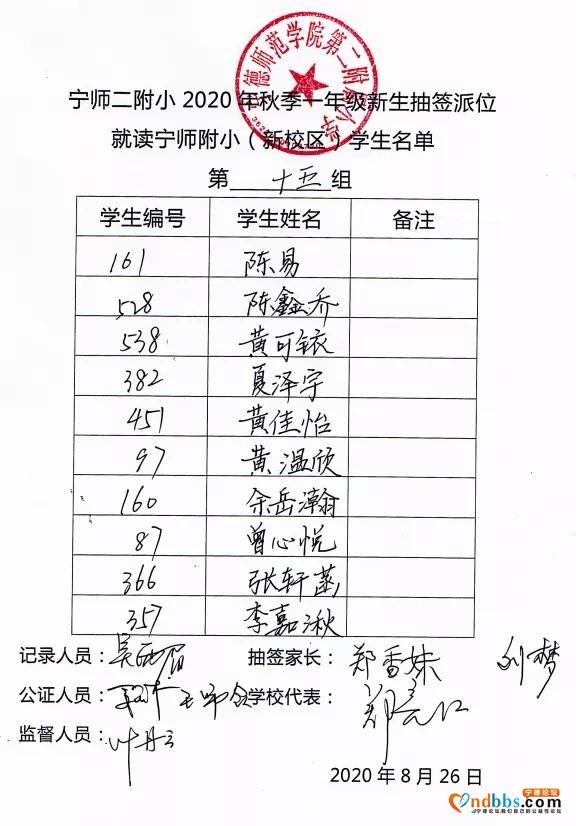 宁德师范学院第二附属小学
宁师二附小 2020 年秋季一年级新生抽签派位
就读宁师附小（新校区）学生名单
第 十五 组
学生编号 学生姓名 备注
161 陈易
528 陈鑫乔
538 黄可铱
382 夏泽宇
451 黄佳怡
97 黄温欣
160 余岳瀚
87 曾心悦
366 张轩菡
357 李嘉湫
记录人员： 抽签家长：郑香妹 刘梦
公证人员： 学校代表：
监督人员：叶丹
2020 年 8 月 26 日
宁德论坛
ndbbs.com
宁德论坛,我们自己的公益性论坛